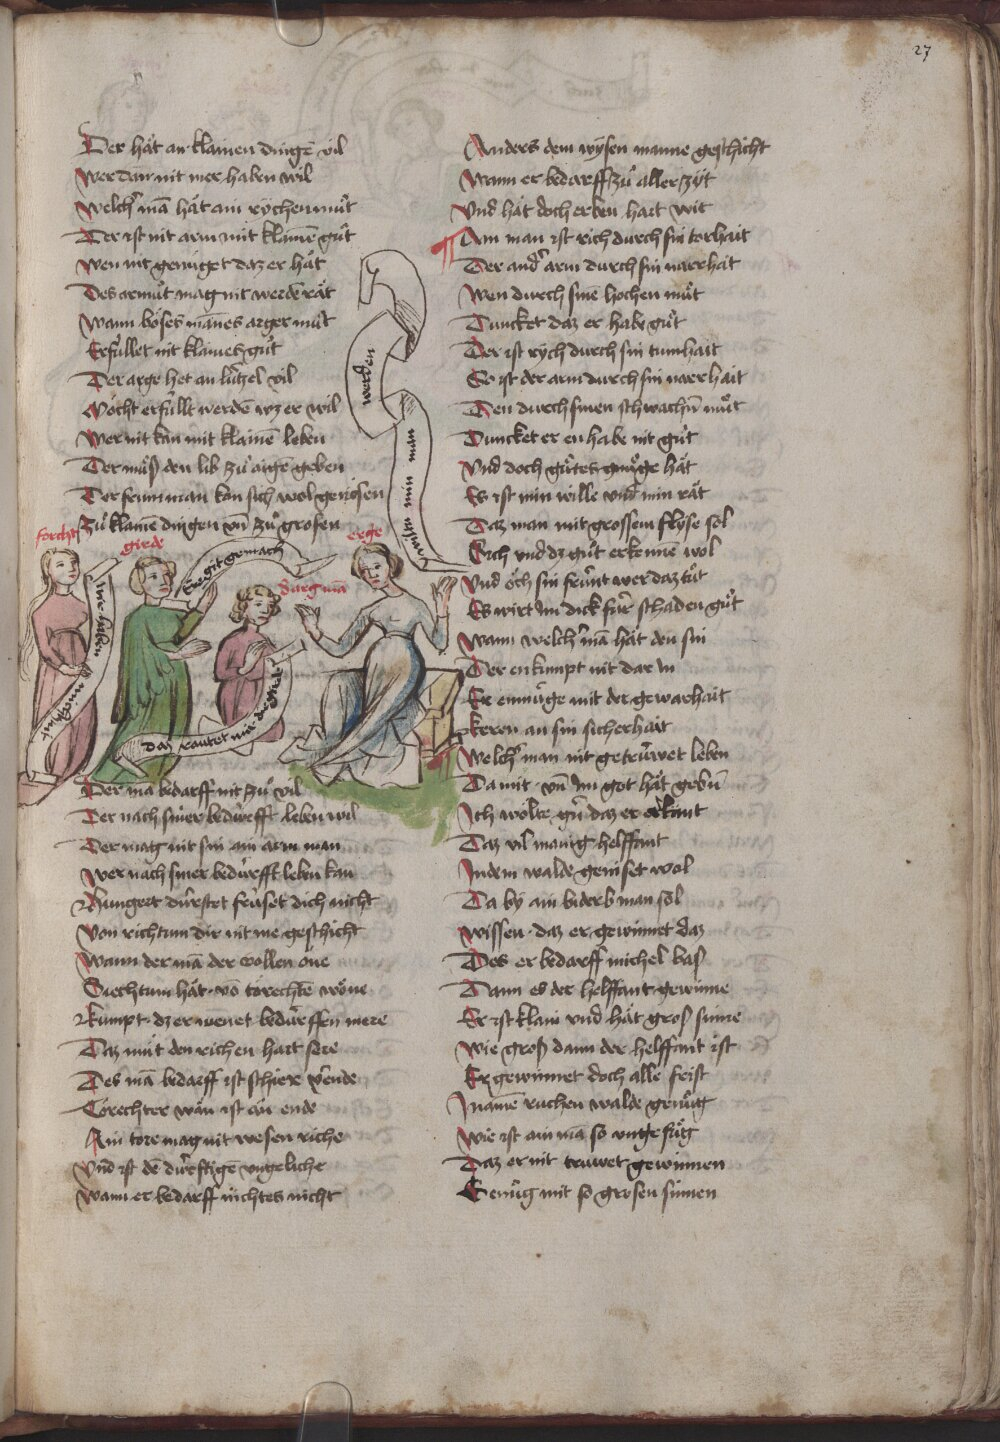 27
Der hăt an klainen dingē vil
Wer dan nit mer haben wil
Welch' mā hăt ain rychen můt
Der ist nit arm mit klainē gůt
Wen nit genüget daz er hăt
Des armůt mag nit werdē răt
Wann böses mānes arger můt
Erfüllet nit klaines gůt
Der arge het an lützel vil
Möcht erfüllt werdē wz er wil
Wer nit kan mit klainē leben
Der můß den lib zů aigē geben
Der frum man kan sich wol genösen
Zů klainē dingen vn̄ zů grosen
forcht
girde
erge
karg mā
Er git gemach
mir helffen
daz rautet mir
werden
min man
Der mā bedarff nit zů vil
Der nach siner bedürfft leben wil
Der mag nit sin ain arm man
Wer nach siner bedürfft leben kan
Hungert dürstet früset dich nicht
Von richtum dir nit me geschicht
Wann der mā der wollen one
Siechtum hăt vō torechtē wöne
Kumpt dz er wenet bedürffen mere
Daz müt den richen hart sere
Des mā bedarff ist schiere v'ende
Torechter wăn ist ăn ende
Ain tore mag nit wesen riche
Vnd ist dē dürfftigē vngeliche
Wann er bedarff nichtes nicht
Anders dem wysen manne geschicht
Wann er bedarff zů aller zyt
Vnd hăt doch erben hart wit
Ain man ist rich durch sin torhait
Der and' arm durch sin narrhait
Wen durch sinē hochen můt
Duncket daz er habe gůt
Der ist rych durch sin tumhait
So ist der arm durch sin narrhait
Den durch sinen schwachn̄ můt
Duncket er en habe nit gůt
Vnd doch gůtes gnůge hăt
Es ist min wille vnd min răt
Daz man mit grossem flyse sol
Sich vnd dz gůt erkennē wol
Vnd öch sin frünt wer daz tůt
Es wirt Im dick für schaden gůt
Wann welch' mā hăt den sin
Der en kumpt nit dar In
Er enmüge mit der gewarhait
Keren an sin sicherhait
Welch' man nit getrüwet leben
Da mit vn̄ Im got hăt gebn̄
Ich wölte gn̄ daz er erkant
Daz vil manig helffant
In dem walde geniset wol
Da by ain biderb man sol
Wissen daz er gewinnet daz
Des er bedarff michel bas
Dann es der helffant gewinne
Er ist klain vnd hăt groß sinne
Wie groß dann der helffant ist
Er gewinnet doch alle frist
In ainē ruchen walde genůg
Wie ist ain mā so vngefůg
Daz er nit truwet gewinnen
Genůg mit so grosen sinnen